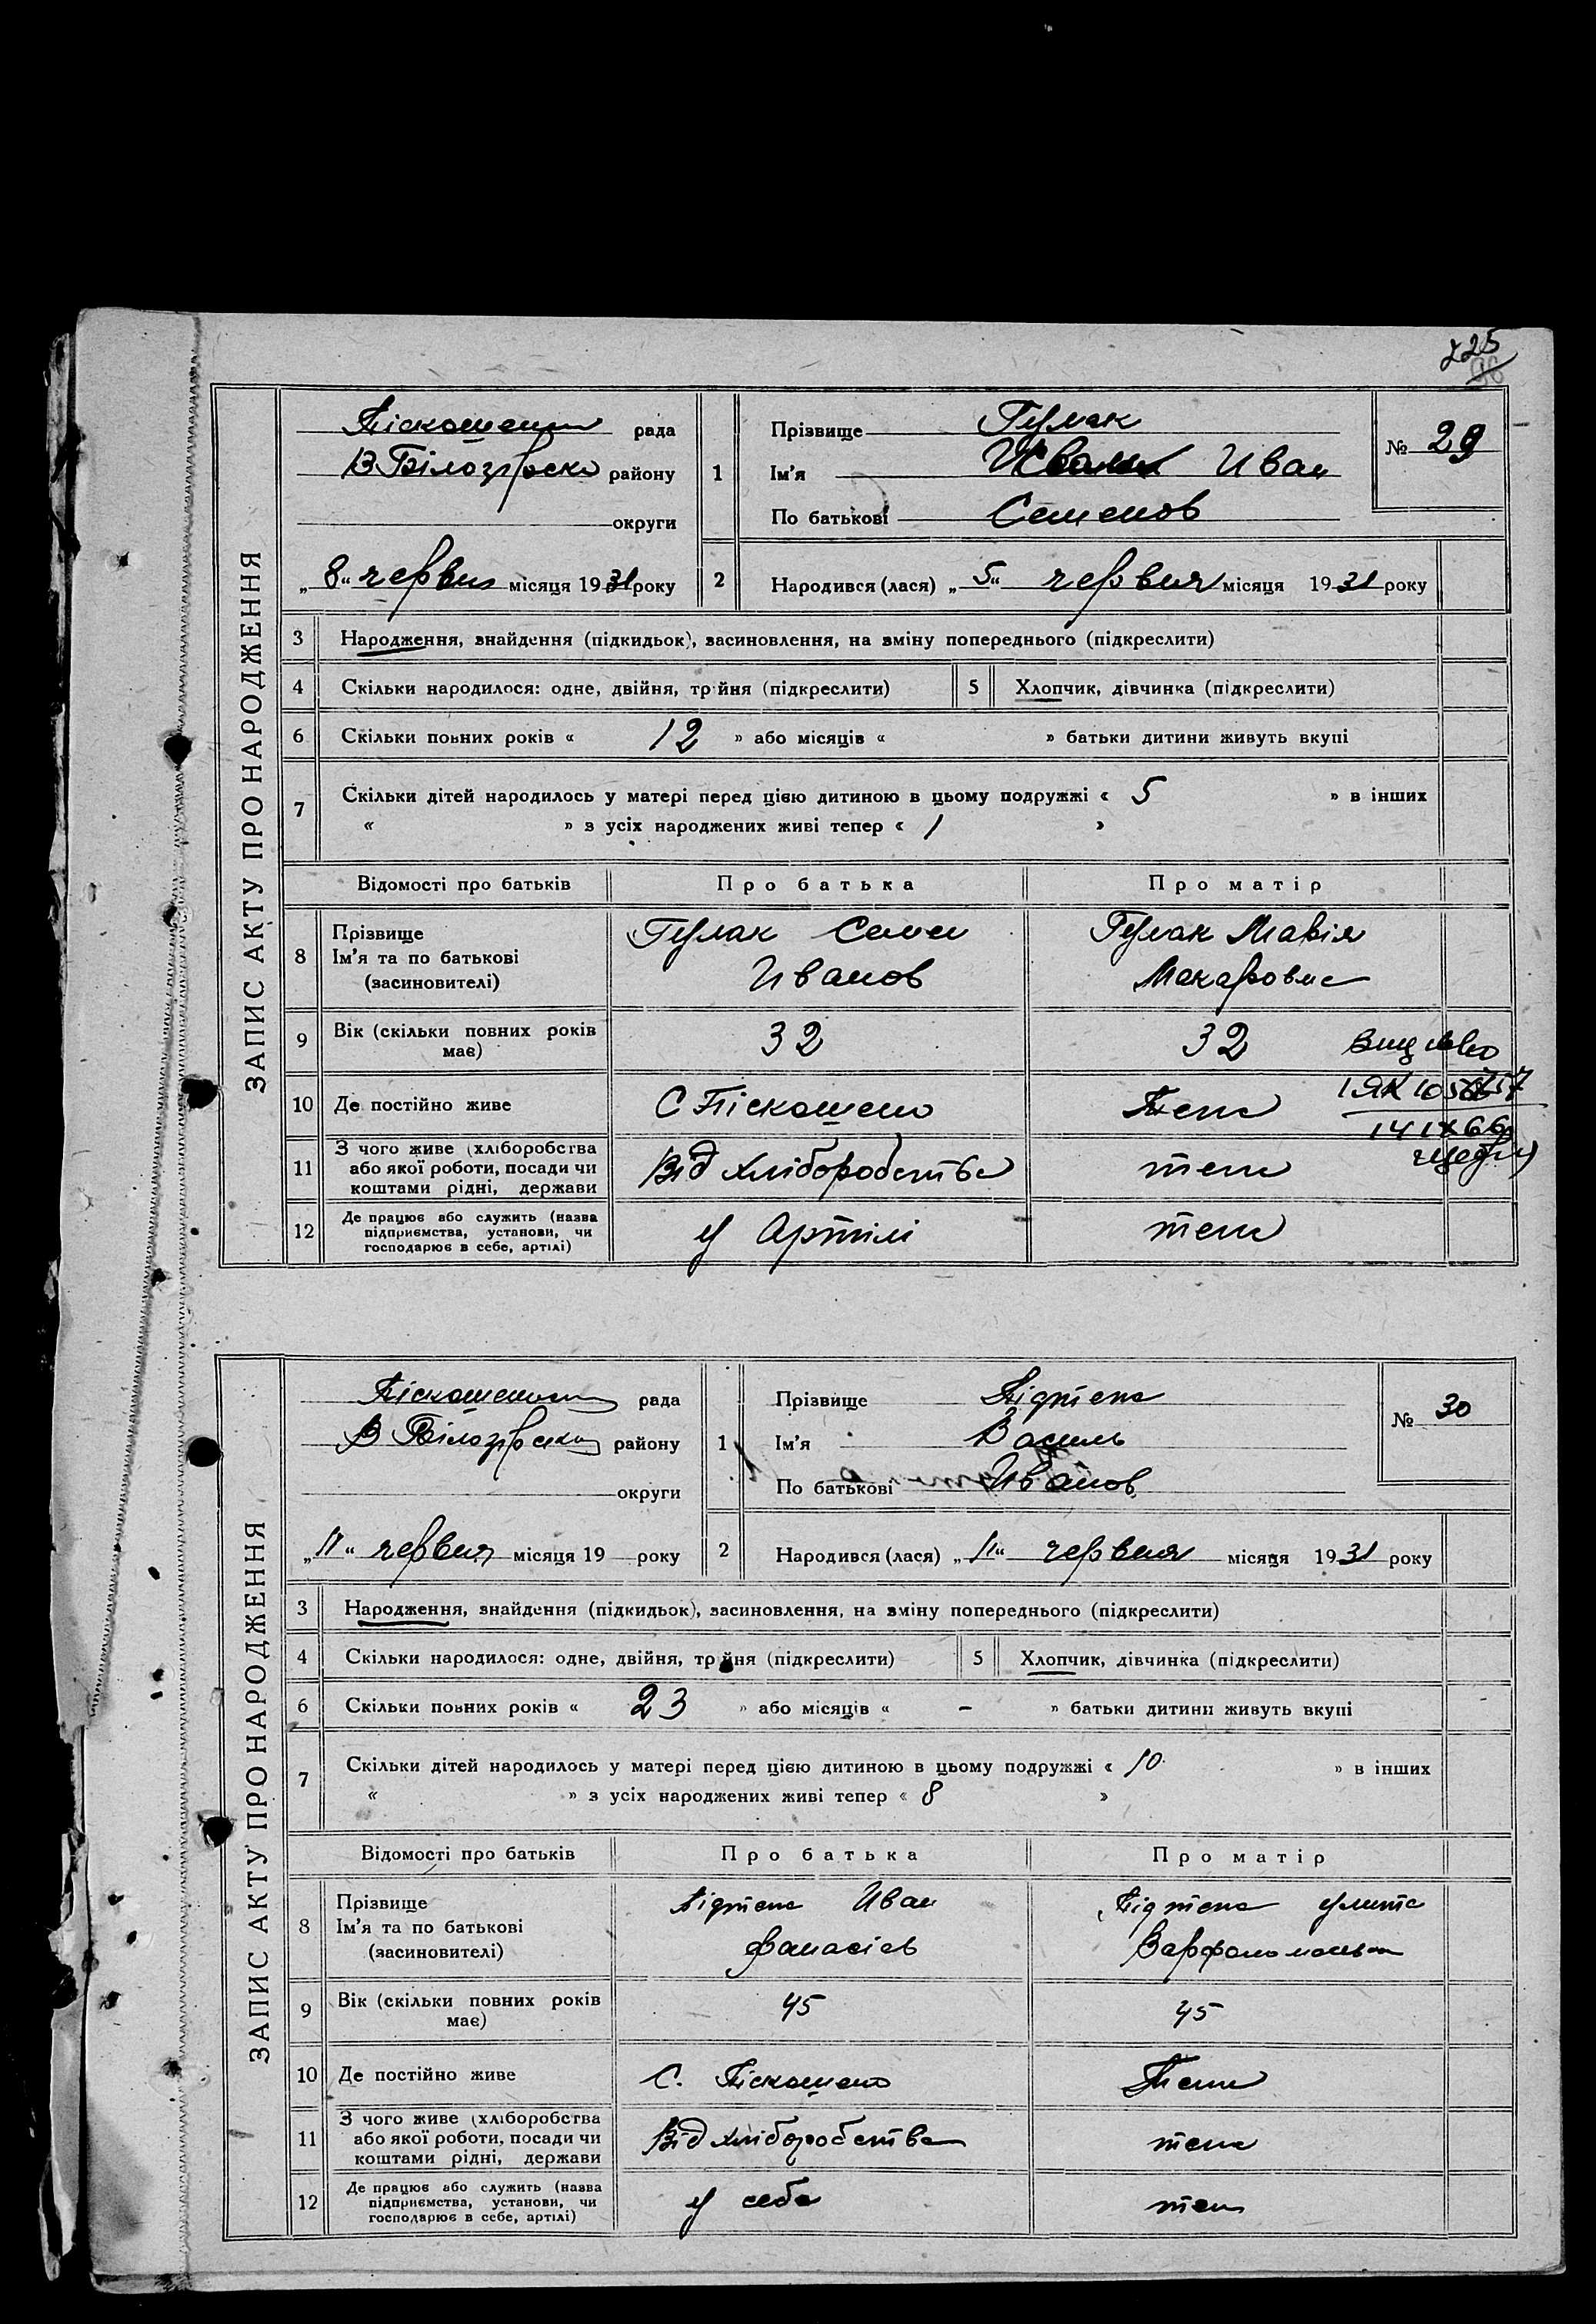 225
ЗАПИС АКТУ ПРО НАРОДЖЕННЯ
рада
В Білозірсько району
округи
„8“ червня місяця 1931 року
1
Прізвище Гулак
Ім'я Иван
По батькові Семенов
№ 29
2 Народився (лася) „5“ червня місяця 1931 року
3 Народження, знайдення (підкидьок), засиновлення, на зміну попереднього (підкреслити)
4 Скільки народилося: одне, двійня, трійня (підкреслити) 5 Хлопчик, дівчинка (підкреслити)
6 Скільки повних років « 12 » або місяців « » батьки дитини живуть вкупі
7 Скільки дітей народилось у матері перед цією дитиною в цьому подружжі « 5 » в інших
« » з усіх народжених живі тепер « 1 »
Відомості про батьків Про батька Про матір
8 Прізвище Ім'я та по батькові (засновителі)
Гулак Семен Иванов
Гулак Марія Макаровна
9 Вік (скільки повних років має) 32 32
10 Де постійно живе С Піскошено Тена
11 З чого живе (хліборобства або якої роботи, посади чи коштами рідні, держави Від хліборобства тена
12 Де працює або служить (назва підприємства, установи, чи господарює в себе, артілі) у Артілі тена
ЗАПИС АКТУ ПРО НАРОДЖЕННЯ
рада
В Білозірсько району
округи
„11“ червня місяця 19 року
1
Прізвище Підтепа
Ім'я Василь
По батькові Иванов
№ 30
2 Народився (лася) „11“ червня місяця 1931 року
3 Народження, знайдення (підкидьок), засиновлення, на зміну попереднього (підкреслити)
4 Скільки народилося: одне, двійня, трійня (підкреслити) 5 Хлопчик, дівчинка (підкреслити)
6 Скільки повних років « 23 » або місяців « – » батьки дитини живуть вкупі
7 Скільки дітей народилось у матері перед цією дитиною в цьому подружжі « 10 » в інших
« » з усіх народжених живі тепер « 8 »
Відомості про батьків Про батька Про матір
8 Прізвище Ім'я та по батькові (засиновителі)
Підтепа Иван
Підтепа Улита
9 Вік (скільки повних років має) 45 45
10 Де постійно живе С. Піскошено Тена
11 З чого живе (хліборобства або якої роботи, посади чи коштами рідні, держави Від хліборобства тена
12 Де працює або служить (назва підприємства, установи, чи господарює в себе, артілі) у себе